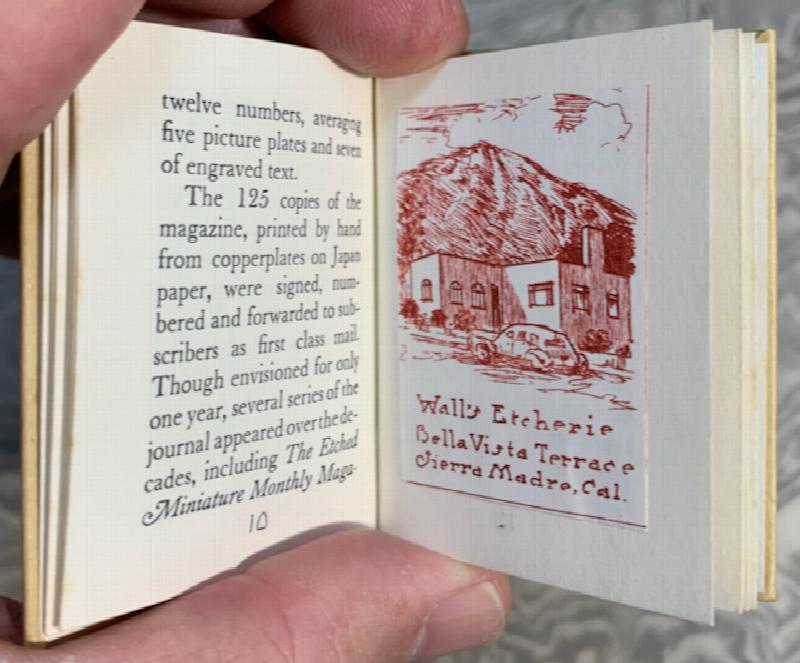 twelve numbers, averaging
five picture plates and seven
of engraved text.
The 125 copies of the
magazine, printed by hand
from copperplates on Japan
paper, were signed, num-
bered and forwarded to sub-
scribers as first class mail.
Though envisioned for only
one year, several series of the
journal appeared over the de-
cades, including The Etched
Miniature Monthly Maga-
10
Wall's Etcherie
Bella Vista Terrace
Sierra Madre, Cal.